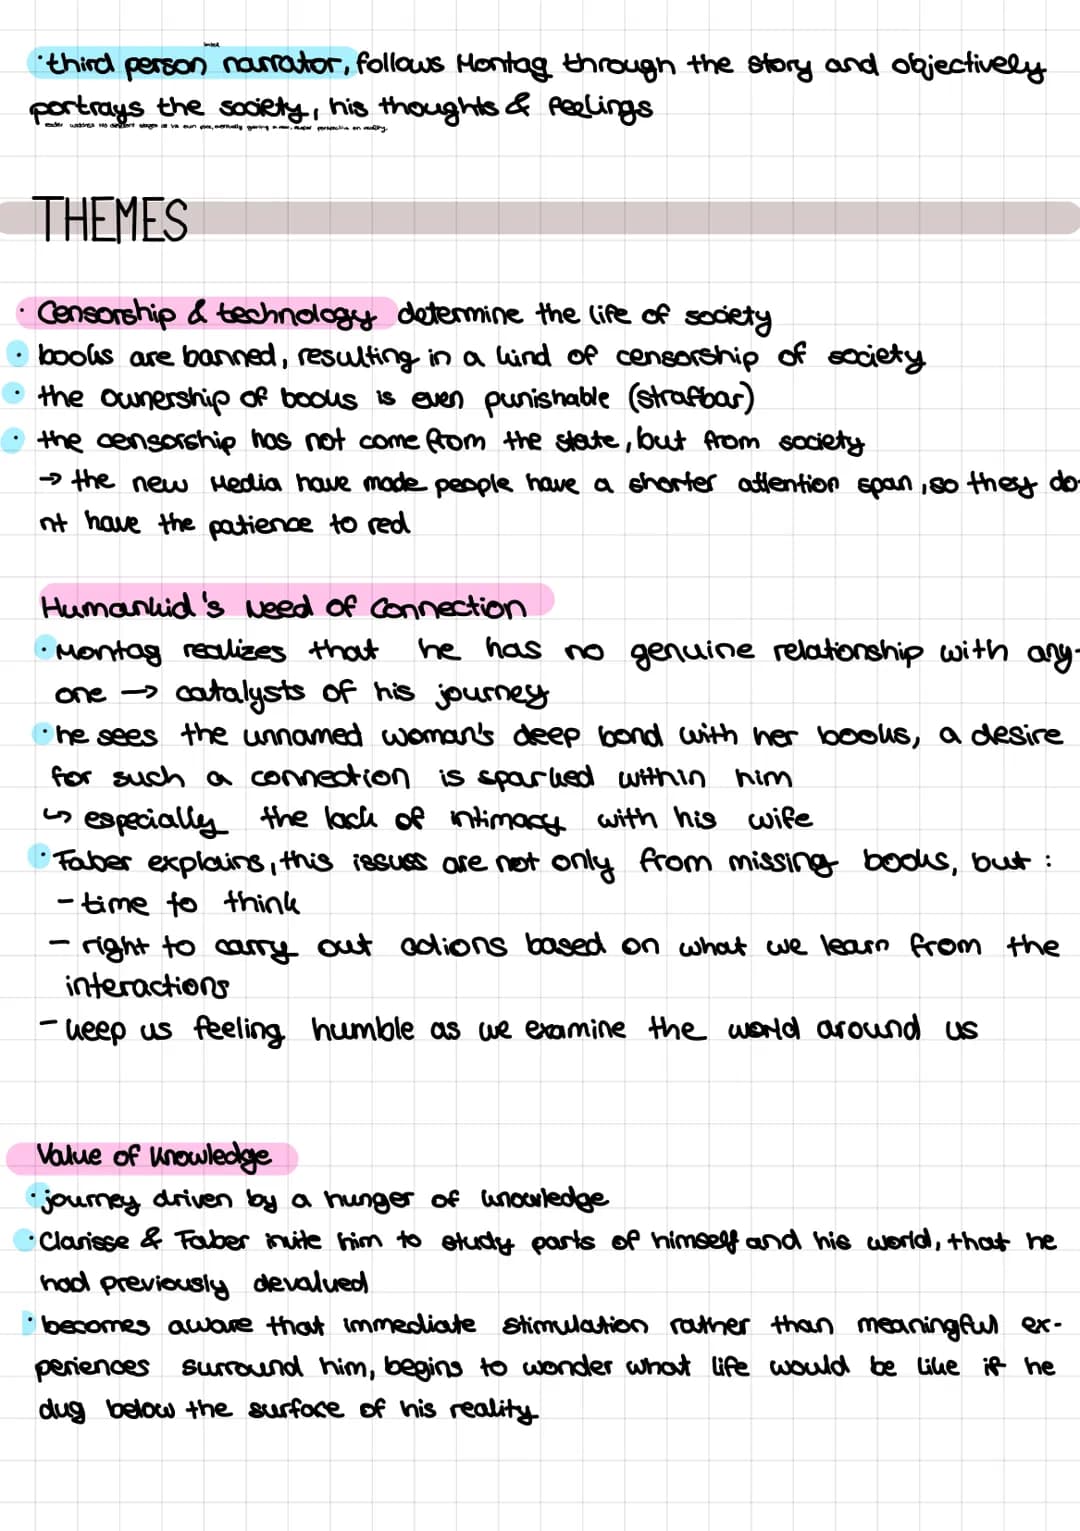 ·third person narrator, follows Montag through the story and objectively
portrays the society, his thoughts & feelings
THEMES
· Censorship & technology determine the life of society
· books are banned, resulting in a kind of censorship of society
· the ownership of books is even punishable (strafbar)
· the censorship has not come from the state, but from society
→ the new Media have made people have a shorter attention span, so they do-
nt have the patience to red
Humankid's Need of Connection
· Montag realizes that he has no genuine relationship with any-
one → catalysts of his journey
· he sees the unnamed woman's deep bond with her books, a desire
for such a connection is sparked within him
↳ especially the lack of intimacy with his wife
· Faber explains, this issues are not only from missing books, but:
- time to think
- right to carry out actions based on what we learn from the
interactions
- keep us feeling humble as we examine the world around us
Value of Knowledge
· journey driven by a hunger of knowledge
· Clarisse & Faber invite him to study parts of himself and his world, that he
had previously devalued
· becomes aware that immediate stimulation rather than meaningful ex-
periences surround him, begins to wonder what life would be like if he
dug below the surface of his reality